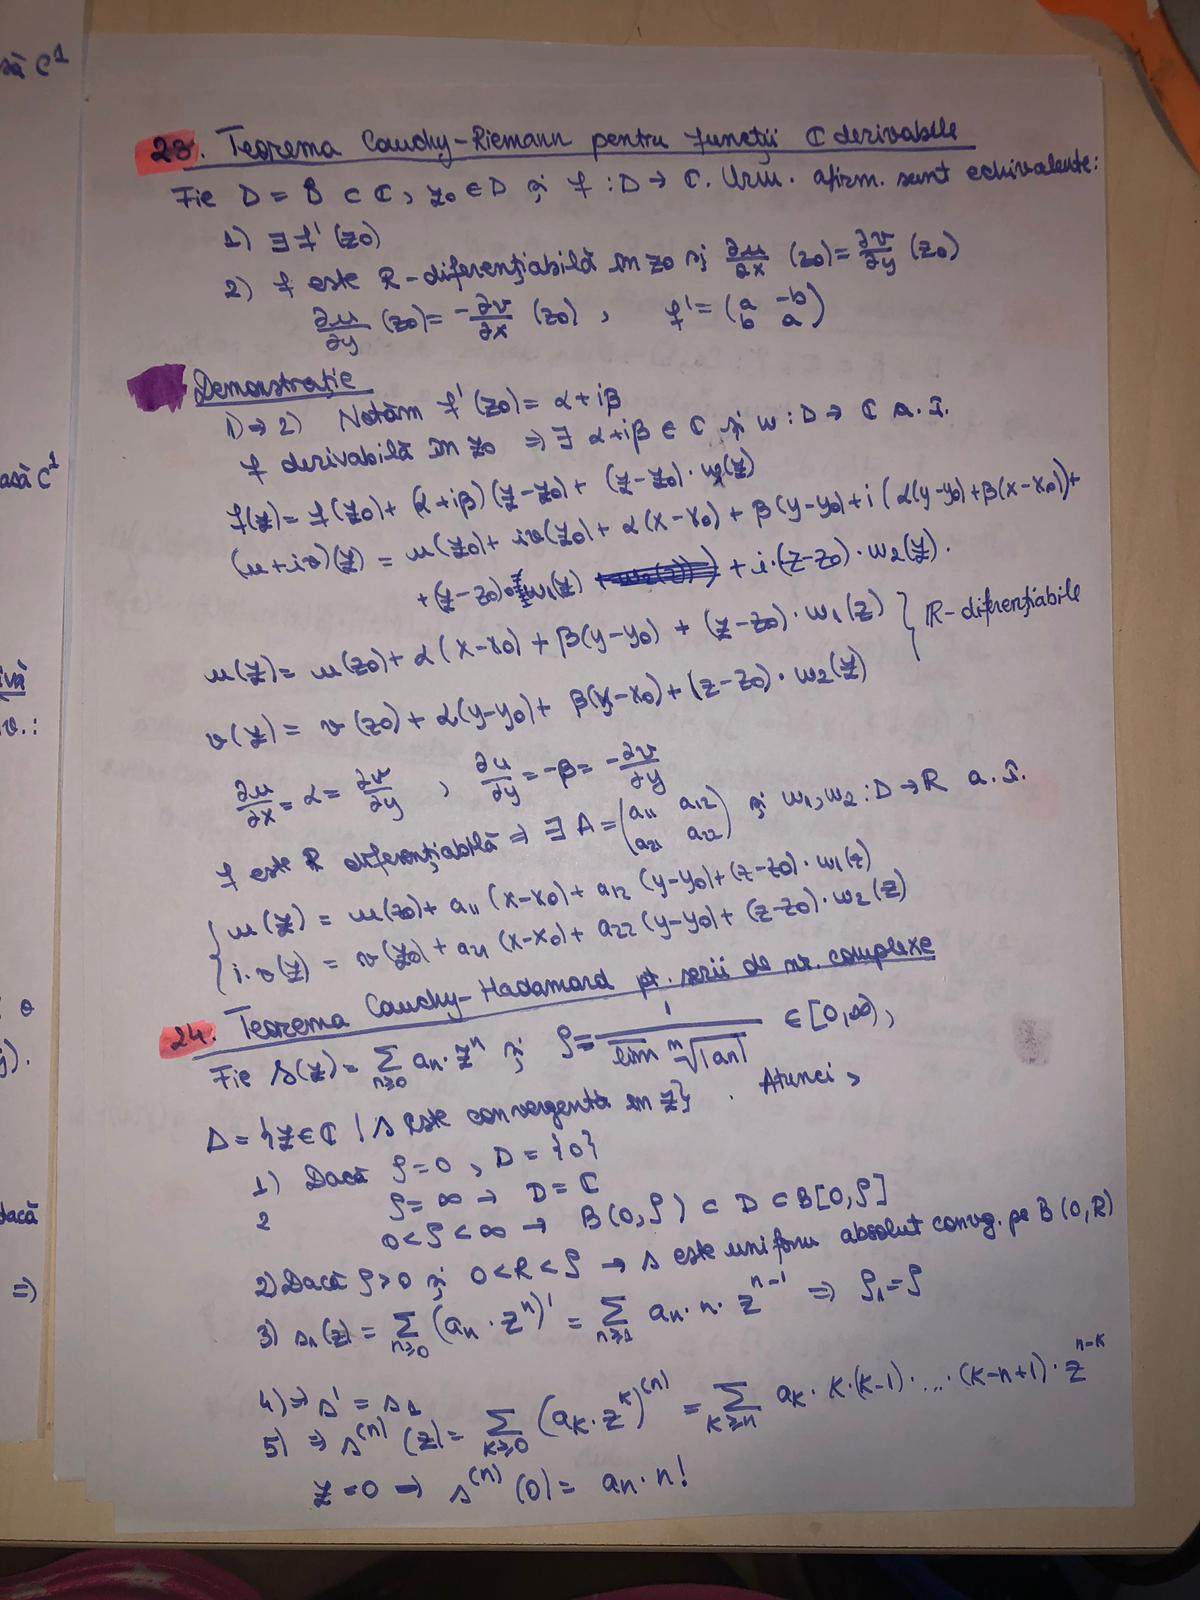 să C¹
asă C¹
ivă
v.:
dacă
=>
23. Teorema Cauchy-Riemann pentru funcții ℂ derivabile
Fie D = D̊ ⊂ ℂ, z₀ ∈ D și f : D → ℂ. Urm. afirm. sunt echivalente:
1) ∃ f'(z₀)
2) f este R-diferențiabilă în z₀ și ∂u/∂x (z₀) = ∂v/∂y (z₀)
∂u/∂y (z₀) = -∂v/∂x (z₀) , f' = (a -b
b a)
Demonstrație
1) → 2) Notăm f'(z₀) = α + iβ
f derivabilă în z₀ => ∃ α+iβ ∈ ℂ și w : D → ℂ a. î.
f(z) = f(z₀) + (α+iβ)(z-z₀) + (z-z₀)·w(z)
(u+iv)(z) = u(z₀) + iv(z₀) + α(x-x₀) + β(y-y₀) + i(α(y-y₀) + β(x-x₀)) +
+ (z-z₀)·w₁(z) + i·(z-z₀)·w₂(z).
u(z) = u(z₀) + α(x-x₀) + β(y-y₀) + (z-z₀)·w₁(z) } R-diferențiabile
v(z) = v(z₀) + α(y-y₀) + β(x-x₀) + (z-z₀)·w₂(z)
∂u/∂x = α = ∂v/∂y , ∂u/∂y = -β = -∂v/∂y
f este R diferențiabilă => ∃ A = (a₁₁ a₁₂
a₂₁ a₂₂) și w₁, w₂ : D → R a. î.
{ u(z) = u(z₀) + a₁₁(x-x₀) + a₁₂(y-y₀) + (z-z₀)·w₁(z)
i·v(z) = v(z₀) + a₂₁(x-x₀) + a₂₂(y-y₀) + (z-z₀)·w₂(z)
24. Teorema Cauchy-Hadamard pt. serii de nr. complexe
Fie s(z) = ∑ n≥0 aₙ·zⁿ și ρ = 1/(lim ⁿ√|aₙ|) ∈ [0,∞),
D = {z ∈ ℂ | s este convergentă în z}. Atunci,
1) Dacă ρ = 0, D = {0}
2 ρ = ∞ → D = ℂ
0 < ρ < ∞ → B(0,ρ) ⊂ D ⊂ B[0,ρ]
2) Dacă ρ > 0 și 0 < R < ρ → s este uniform absolut convg. pe B(0,R)
3) s₁(z) = ∑ n≥0 (aₙ·zⁿ)' = ∑ n≥1 aₙ·n·zⁿ⁻¹ => ρ₁ = ρ
4) => s' = s₁
5) => s⁽ⁿ⁾(z) = ∑ k≥0 (aₖ·zᵏ)⁽ⁿ⁾ = ∑ k≥n aₖ·k·(k-1)·...·(k-n+1)·zⁿ⁻ᵏ
z = 0 → s⁽ⁿ⁾(0) = aₙ·n!